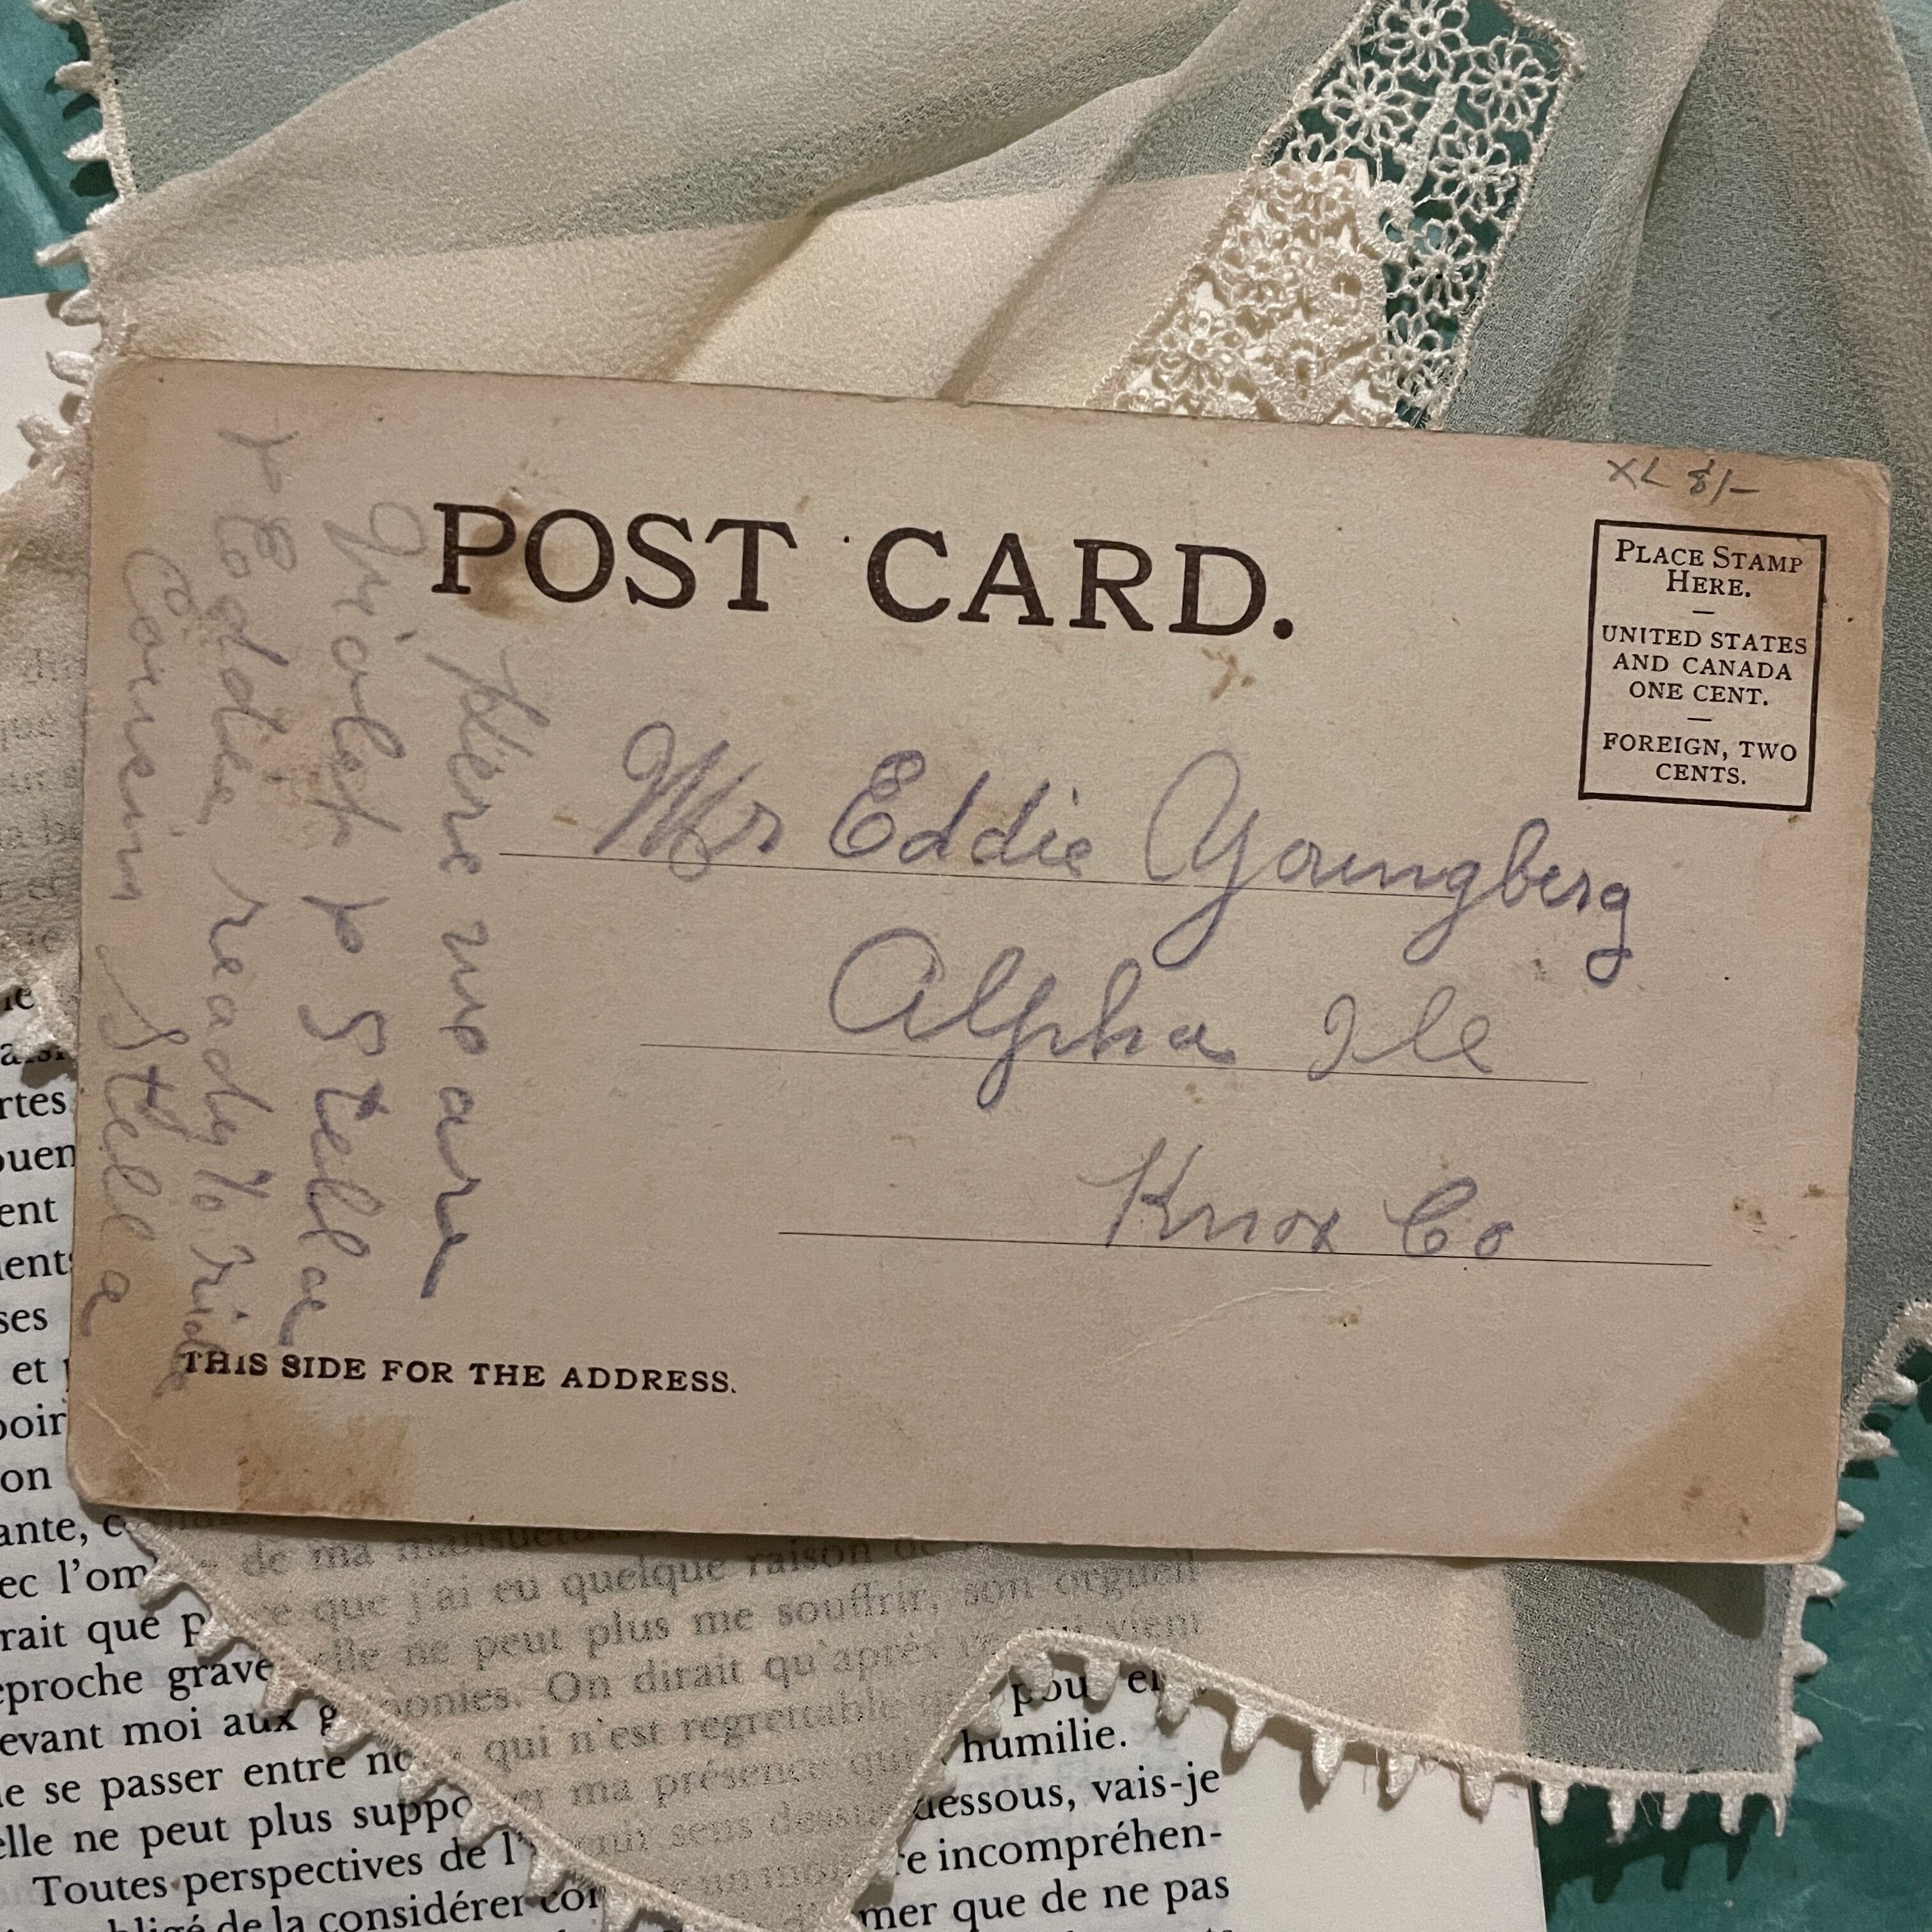 XL $/-
POST CARD.
PLACE STAMP
HERE.
—
UNITED STATES
AND CANADA
ONE CENT.
—
FOREIGN, TWO
CENTS.
Mr Eddie Youngberg
Alpha Ill
Knox Co
Here we are
Violet & Stella
& Eddie, ready to ride
Cousin Stella
THIS SIDE FOR THE ADDRESS.
rtes
ouen
ent
ses
et
poir
on
ante,
ec l'om de ma
rait que p ce que j'ai eu quelque raison de
eproche grave elle ne peut plus me souffrir, son orgueil
evant moi aux g onies. On dirait qu'après vient
e se passer entre no qui n'est regrettable pour el
elle ne peut plus suppo er ma présence qui humilie.
Toutes perspectives de l' sens dessus dessous, vais-je
obligé de la considérer com re incompréhen-
mer que de ne pas